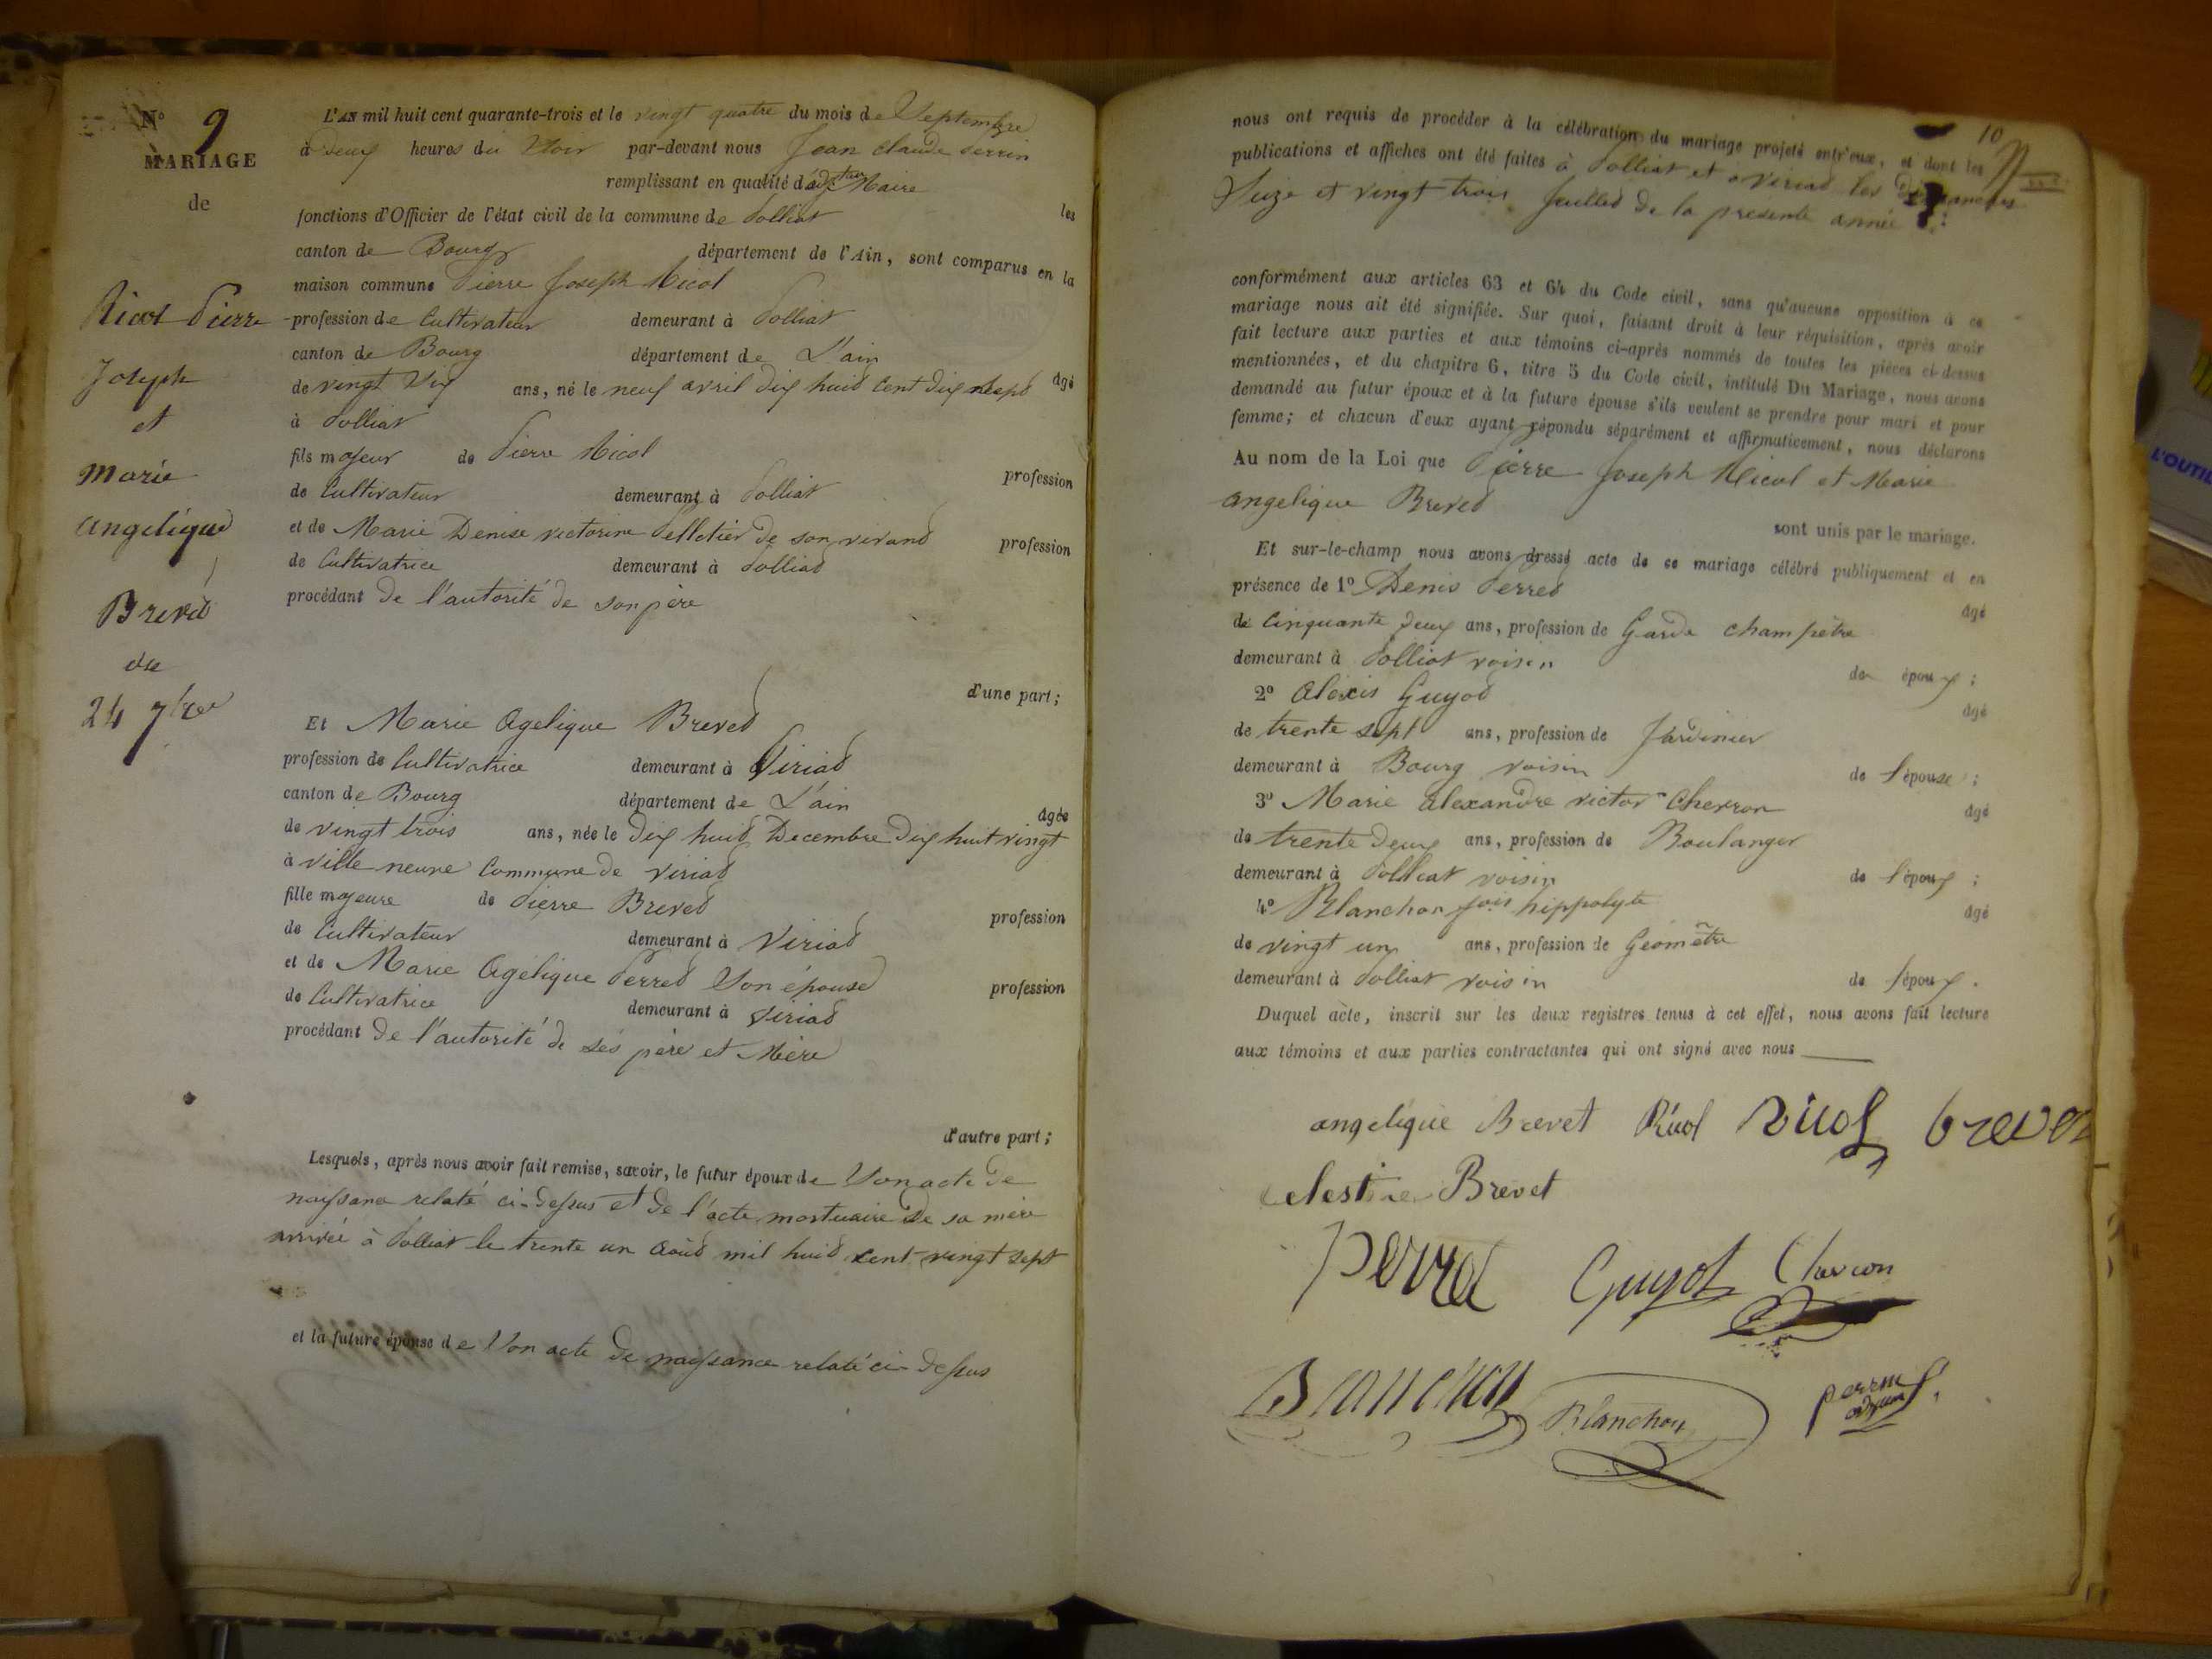 N° 9
MARIAGE
de
Nicol Pierre
Joseph
et
Marie
angelique
Breved
du
24 7bre
L'AN mil huit cent quarante-trois et le vingt quatre du mois de Septembre
à deux heures du Soir par-devant nous Jean claude perrin
remplissant en qualité d'adjt au Maire les
fonctions d'Officier de l'état civil de la commune de Polliat
canton de Bourg département de l'Ain, sont comparus en la
maison commune Pierre Joseph Nicol
profession de Cultivateur demeurant à Polliat
canton de Bourg département de L'ain agé
de vingt Six ans, né le neuf avril dix huid cent dix sept
à Polliat
fils majeur de Pierre Nicol profession
de Cultivateur demeurant à Polliat
et de Marie Denise victorine Pelletier de son vivand profession
de Cultivatrice demeurant à Polliad
procédant de l'autorité de son père
d'une part;
Et Marie Agelique Breved
profession de Cultivatrice demeurant à Viriad
canton de Bourg département de L'ain agée
de vingt trois ans, née le dix huid Decembre dix huit vingt
à ville neuve Commune de viriad
fille majeure de Pierre Breved profession
de Cultivateur demeurant à Viriad
et de Marie Agélique Perred Son épouse profession
de Cultivatrice demeurant à Viriad
procédant de l'autorité de ses père et Mère
d'autre part;
Lesquels, après nous avoir fait remise, savoir, le futur époux de Son acte de
naissance relaté ci-dessus et de l'acte mortuaire de sa mère
arrivée à Polliat le trente un Aoûd mil huid cent vingt sept
et la future épouse de Son acte de naissance relaté ci-dessus
10
nous ont requis de procéder à la célébration du mariage projeté entr'eux, et dont les
publications et affiches ont été faites à Polliat et à viriad les dimanches
Seize et vingt trois Juilled de la presente année
conformément aux articles 63 et 64 du Code civil, sans qu'aucune opposition à ce
mariage nous ait été signifiée. Sur quoi, faisant droit à leur réquisition, après avoir
fait lecture aux parties et aux témoins ci-après nommés de toutes les pièces ci-dessus
mentionnées, et du chapitre 6, titre 5 du Code civil, intitulé Du Mariage, nous avons
demandé au futur époux et à la future épouse s'ils veulent se prendre pour mari et pour
femme; et chacun d'eux ayant répondu séparément et affirmativement, nous déclarons
Au nom de la Loi que Pierre Joseph Nicol et Marie
angelique Breved
sont unis par le mariage.
Et sur-le-champ nous avons dressé acte de ce mariage célébré publiquement et en
présence de 1° Denis Perred agé
de Cinquante deux ans, profession de Garde champêtre
demeurant à Polliat voisin de époux;
2° Alexis Guyod agé
de trente sept ans, profession de Jardinier
demeurant à Bourg voisin de l'épouse;
3° Marie alexandre victor Cherron agé
de trente deux ans, profession de Boulanger
demeurant à Polliat voisin de l'époux;
4° Blanchon fois hippolyte agé
de vingt un ans, profession de Géomêtre
demeurant à Polliat voisin de l'époux.
Duquel acte, inscrit sur les deux registres tenus à cet effet, nous avons fait lecture
aux témoins et aux parties contractantes qui ont signé avec nous
angelique Brevet Nicol nicol brevet
celestine Brevet
Perret Guyot Charon
Blanchon Blanchon perrin adjoint
L'OUTIL